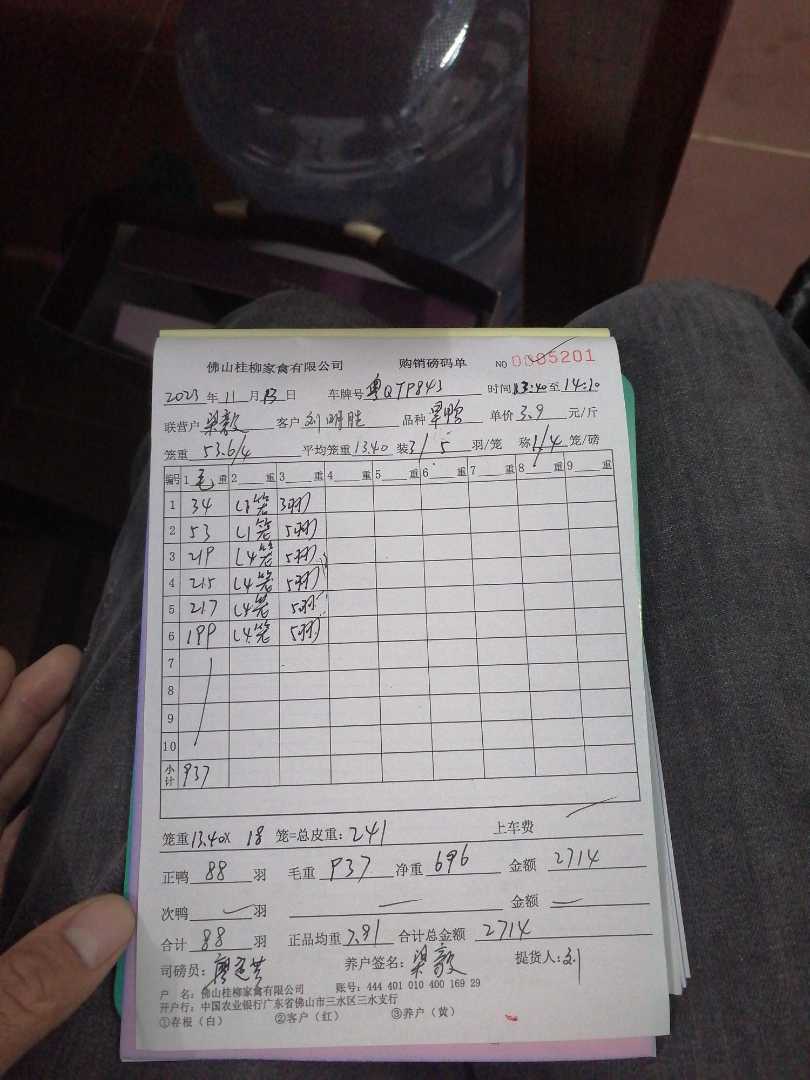 佛山桂柳家禽有限公司 购销磅码单 NO 0005201
2023 年 11 月 13 日 车牌号 粤QTP843 时间 13:40 至 14:10
联营户 梁毅 客户 刘明胜 品种 单价 3.9 元/斤
笼重 53.6/4 平均笼重 13.40 装 3/5 羽/笼 称 1/4 笼/磅
编号 1 毛 重 2 重 3 重 4 重 5 重 6 重 7 重 8 重 9 重
1 34 1笼 3羽
2 53 1笼 5羽
3 219 4笼 5羽
4 215 4笼 5羽
5 217 4笼 5羽
6 199 4笼 5羽
7
8
9
10
小计 937
笼重 13.40X 18 笼=总皮重: 241 上车费
正鸭 88 羽 毛重 937 净重 696 金额 2714
次鸭 羽 金额
合计 88 羽 正品均重 7.91 合计总金额 2714
司磅员: 养户签名: 梁毅 提货人: 刘
户 名: 佛山桂柳家禽有限公司 账号: 444 401 010 400 169 29
开户行: 中国农业银行广东省佛山市三水区三水支行
①存根(白) ②客户(红) ③养户(黄)